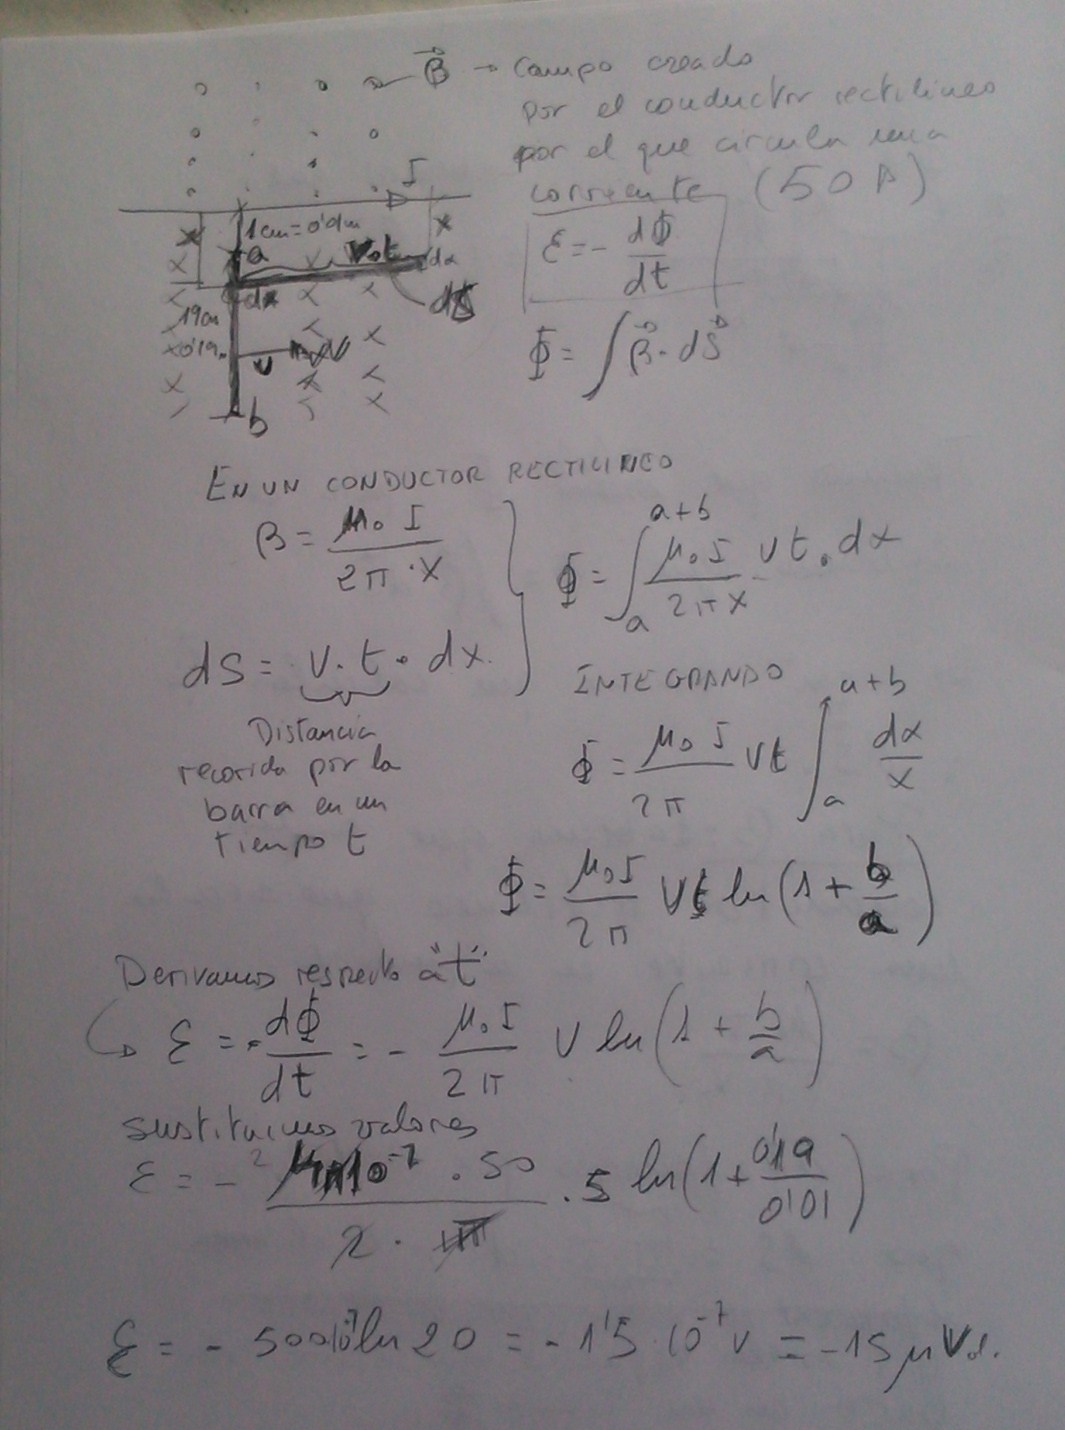 B⃗ → Campo creado
por el conductor rectilineo
por el que circula una
corriente (50 A)
I
1cm = 0'01m
a
v·t
dx
dx
dS
19cm
0'19m
v
b
ε = - dΦ/dt
Φ = ∫ B⃗ · dS⃗
EN UN CONDUCTOR RECTILINEO
B = μ₀ I / 2π · x
dS = v · t · dx
Distancia
recorida por la
barra en un
tiempo t
Φ = ∫ₐᵃ⁺ᵇ μ₀ I / 2πx vt · dx
INTEGRANDO
Φ = μ₀ I / 2π vt ∫ₐᵃ⁺ᵇ dx/x
Φ = μ₀ I / 2π vt ln(1 + b/a)
Derivamos respecto a "t"
ε = - dΦ/dt = - μ₀ I / 2π v ln(1 + b/a)
sustituimos valores
ε = - 2 4π10⁻⁷ · 50 / 2 · π · 5 ln(1 + 0'19/0'01)
ε = - 500 10⁻⁷ ln 20 = - 1'5 · 10⁻⁷ v = - 15 μV